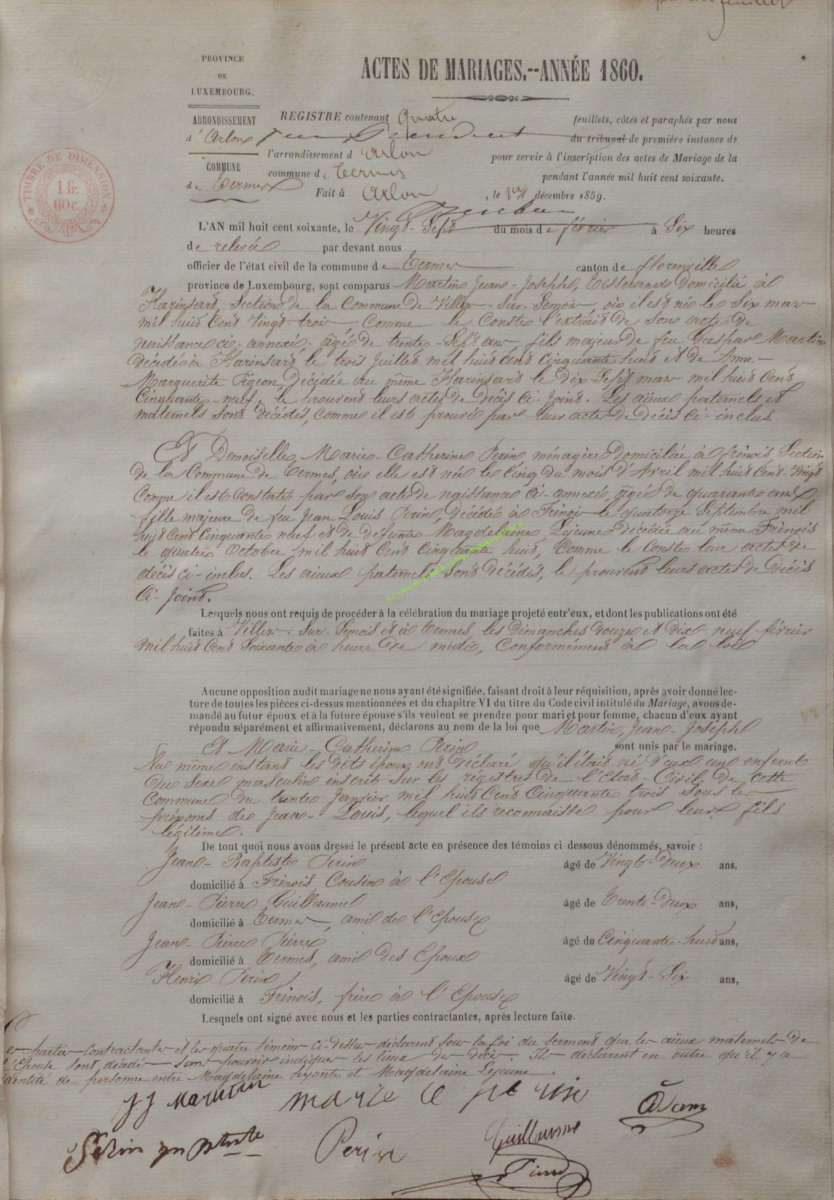 PROVINCE
DE
LUXEMBOURG.
ARRONDISSEMENT
d'Arlon
COMMUNE
de Termes
TIMBRE DE DIMENSION
1 fr.
60 c.
ACTES DE MARIAGES.--ANNÉE 1860.
REGISTRE contenant quatre feuillets, côtés et paraphés par nous
du tribunal de première instance de
l'arrondissement d'Arlon pour servir à l'inscription des actes de Mariage de la
commune de Termes pendant l'année mil huit cent soixante.
Fait à Arlon, le décembre 1859.
L'AN mil huit cent soixante, le Vingt-Sept du mois de février à Six heures
de relevée par devant nous
officier de l'état civil de la commune de Termes canton de florenville
province de Luxembourg, sont comparus Martin Jean-Joseph, Tisserand domicilié à
Harinsart, Section de la Commune de Villers-Sur-Semois, où il est né le Six mars
mil huit Cent Vingt-trois, Comme le Conste l'extrait de Son acte de
naissance ci-annexé, agé de trente-Sept ans, fils majeur de feu Gaspar Martin
décédé à Harinsart le trois Juillet mil huit Cent Cinquante huit et de Anne-
Marguerite Pigeon Décédée au même Harinsart le dix Sept mars mil huit Cent
Cinquante-neuf, le prouvent leurs actes de décès ci-Joints. Les aïeux paternels et
maternels Sont décédés, comme il est prouvé par leur acte de Décès Ci-inclus.
Et Demoiselle Marie-Catherine Perin ménagère domiciliée à frénois Section
de la Commune de Termes, où elle est née le Cinq du mois d'Avril mil huit Cent Vingt
Comme il est Constaté par Son acte de naissance Ci-annexé, agée de quarante ans
fille majeure de feu Jean Louis Perin, Décédé à Frénois le quatorze Septembre mil
huit Cent Cinquante neuf et de défunte Magdelaine Lejeune Décédée au même Frénois
le quatre Octobre mil huit Cent Cinquante huit, Comme le Conste leur actes de
décès ci-inclus. Les aïeux paternels Sont Décédés, le prouvent leurs actes de Décès
Ci-Joints.
Lesquels nous ont requis de procéder à la célébration du mariage projeté entr'eux, et dont les publications ont été
faites à Villers-Sur-Semois et à Termes, les dimanches douze et dix-neuf février
mil huit Cent Soixante à heure de midi, Conformément à la loi
Aucune opposition audit mariage ne nous ayant été signifiée, faisant droit à leur réquisition, après avoir donné lec-
ture de toutes les pièces ci-dessus mentionnées et du chapitre VI du titre du Code civil intitulé du Mariage, avons de-
mandé au futur époux et à la future épouse s'ils veulent se prendre pour mari et pour femme, chacun d'eux ayant
répondu séparément et affirmativement, déclarons au nom de la loi que Martin, Jean Joseph
Et Marie-Catherine Perin sont unis par le mariage.
Au même instant les dits époux ont déclaré qu'il était né d'eux un enfant
du Sexe masculin inscrit Sur les registres de l'Etat-Civil de cette
Commune du trente Janvier mil huit Cent Cinquante trois Sous les
prénoms de Jean-Louis, lequel ils reconnaisse pour leur fils
légitime.
De tout quoi nous avons dressé le présent acte en présence des témoins ci-dessous dénommés, savoir :
Jean-Baptiste Perin âgé de Vingt-Deux ans,
domicilié à Frénois Cousin à l'Epouse
Jean-Pierre Guillaume âgé de Trente-Deux ans,
domicilié à Termes, ami de l'Epouse
Jean-Pierre Pierre âgé de Cinquante-huit ans,
domicilié à Termes, ami des Epoux
Henri Perin âgé de Vingt-Six ans,
domicilié à Frénois, frère à l'Epouse
Lesquels ont signé avec nous et les parties contractantes, après lecture faite.
Les parties Contractantes et les quatre témoins Ci-dessus déclarent sous la foi du serment que les aïeux maternels de
l'Epouse Sont décédés Sans pouvoir indiquer les lieux de décès. Ils déclarent en outre qu'il y a
identité de personne entre Magdelaine et Magdelaine Lejeune.
JJ Martin marie c perin
Perin Guillaume
Pierre